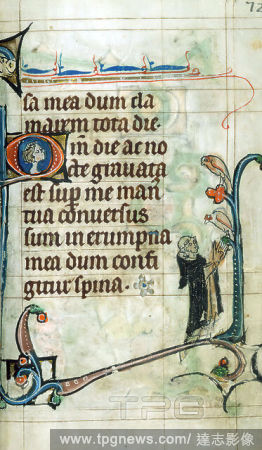 72
sa mea dum cla
marem tota die·
Qm̄ die ac no
cte gravata
est sup̱ me man̄
tua conversus
sum in erumpna
mea dum confi
gitur spina·
TPG
www.tpgnews.com / 達志影像